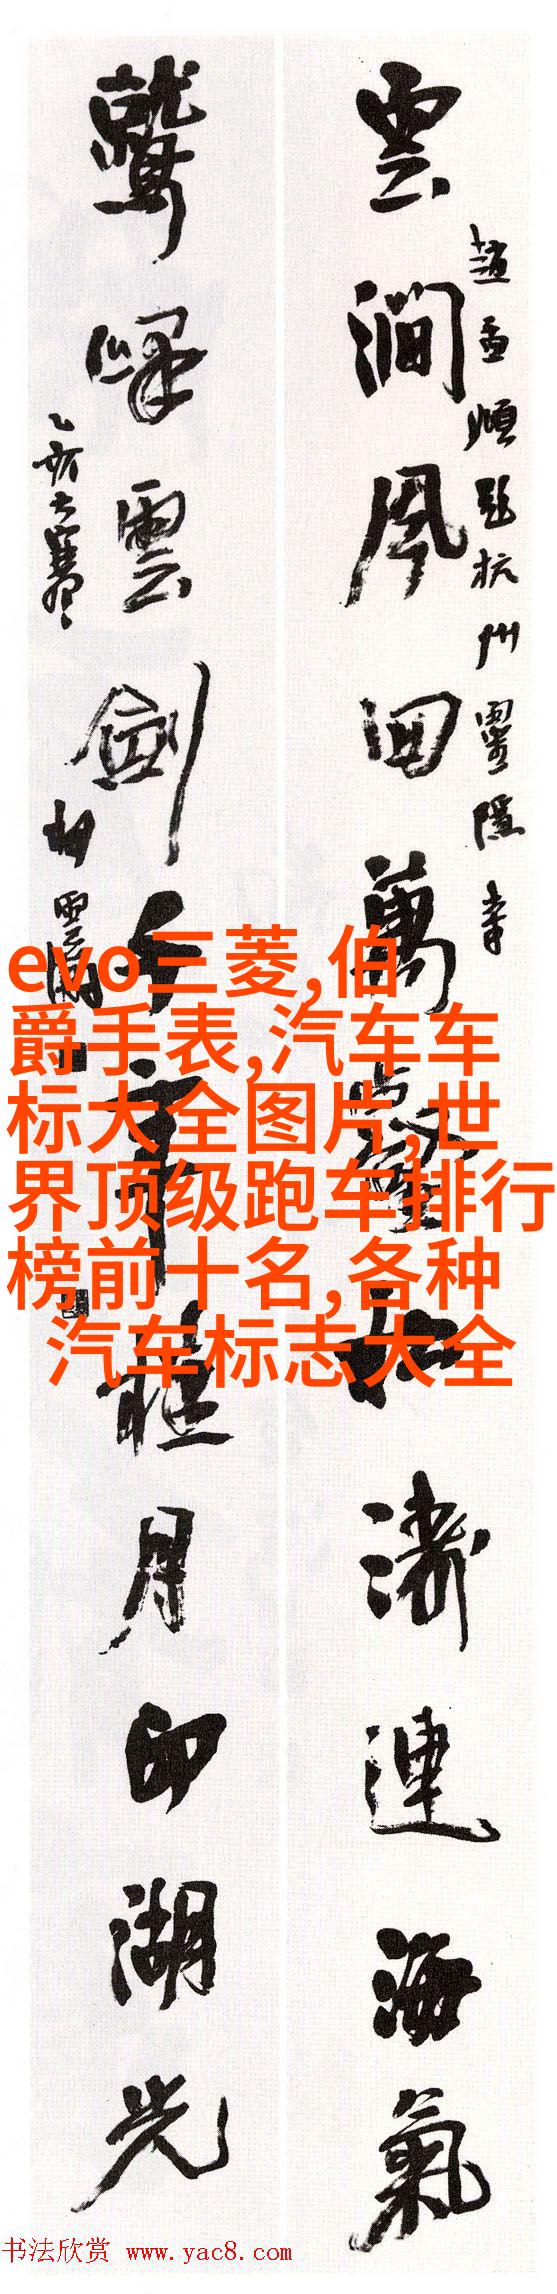 趙孟頫題杭州靈隱寺
雲澗風回萬壑松濤連海氣
鷲峰雲劍千年桂月印湖光
乙亥大寒
evo三菱,伯
爵手表,汽车车
标大全图片,世
界顶级跑车排行
榜前十名,各种
汽车标志大全
书法欣赏 www.yac8.com